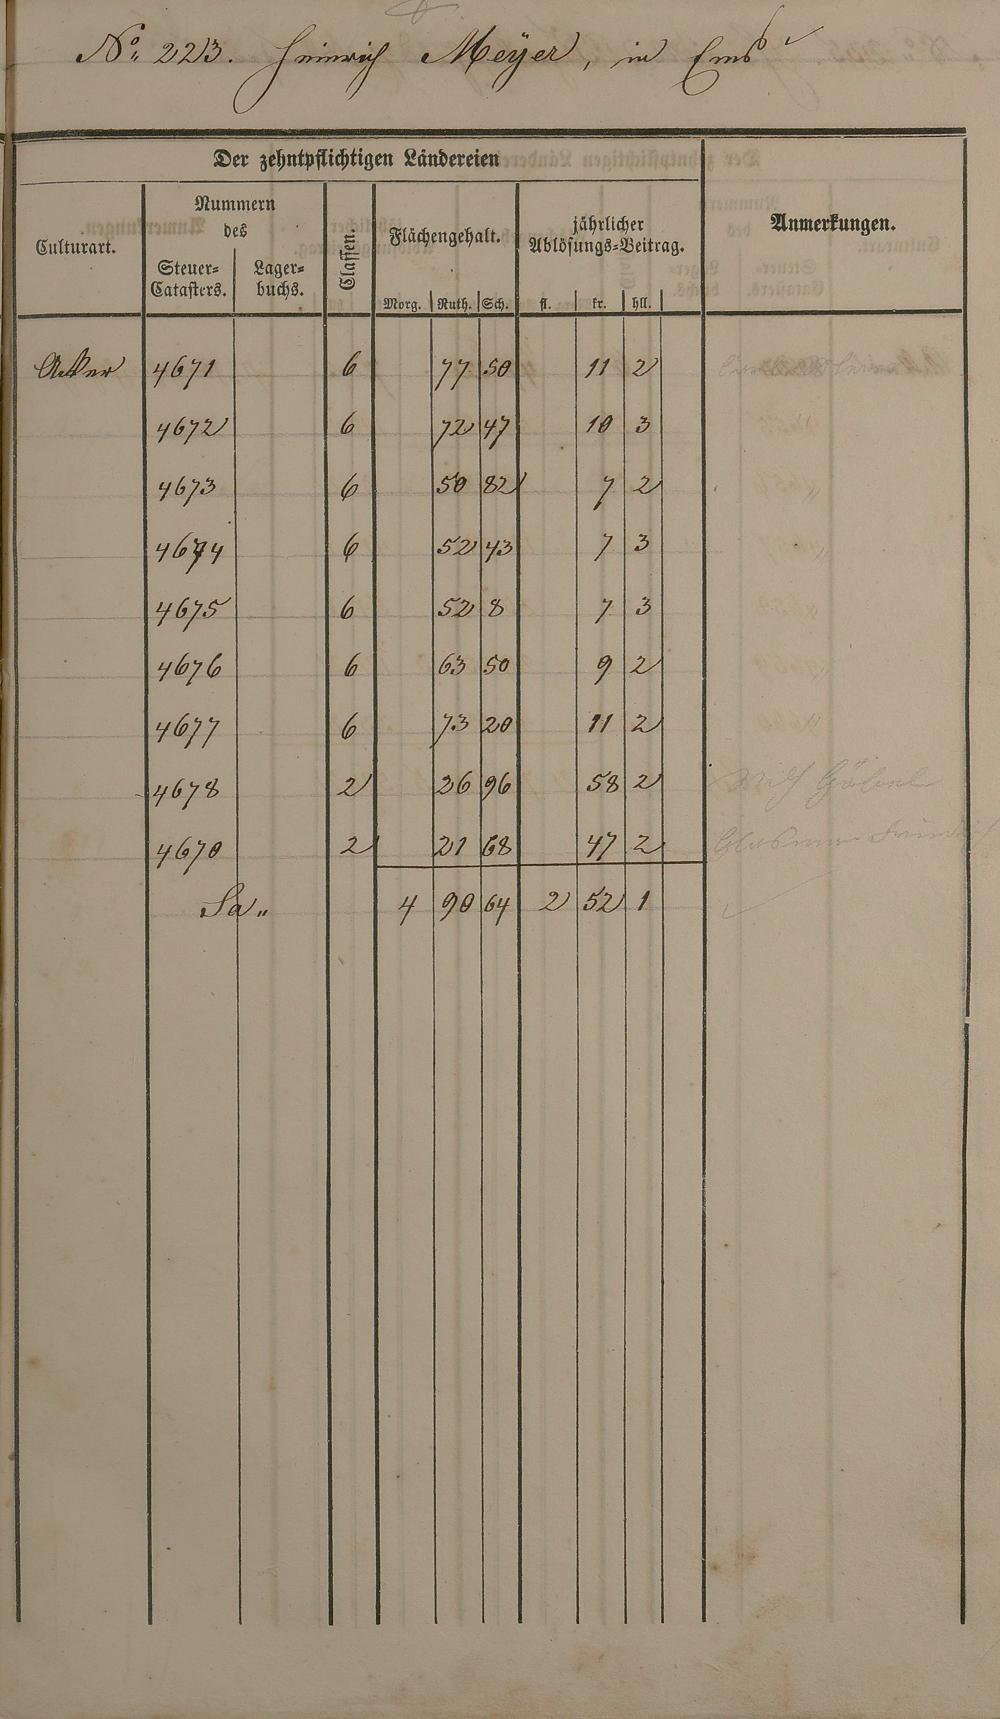 No. 223. Heinrich Meÿer, in Ems
Der zehntpflichtigen Ländereien
Culturart.
Nummern
des
Steuer=
Catasters.
Lager=
buchs.
Classen.
Flächengehalt.
Morg. Ruth. Sch.
jährlicher
Ablösungs=Beitrag.
fl. kr. hll.
Anmerkungen.
Acker 4671 6 77 50 11 2
4672 6 72 47 10 3
4673 6 50 82 7 2
4674 6 52 43 7 3
4675 6 52 8 7 3
4676 6 63 50 9 2
4677 6 73 20 11 2
4678 2 26 96 58 2 Wilh Göbel
4670 2 21 68 47 2
Sa „ 4 90 64 2 52 1